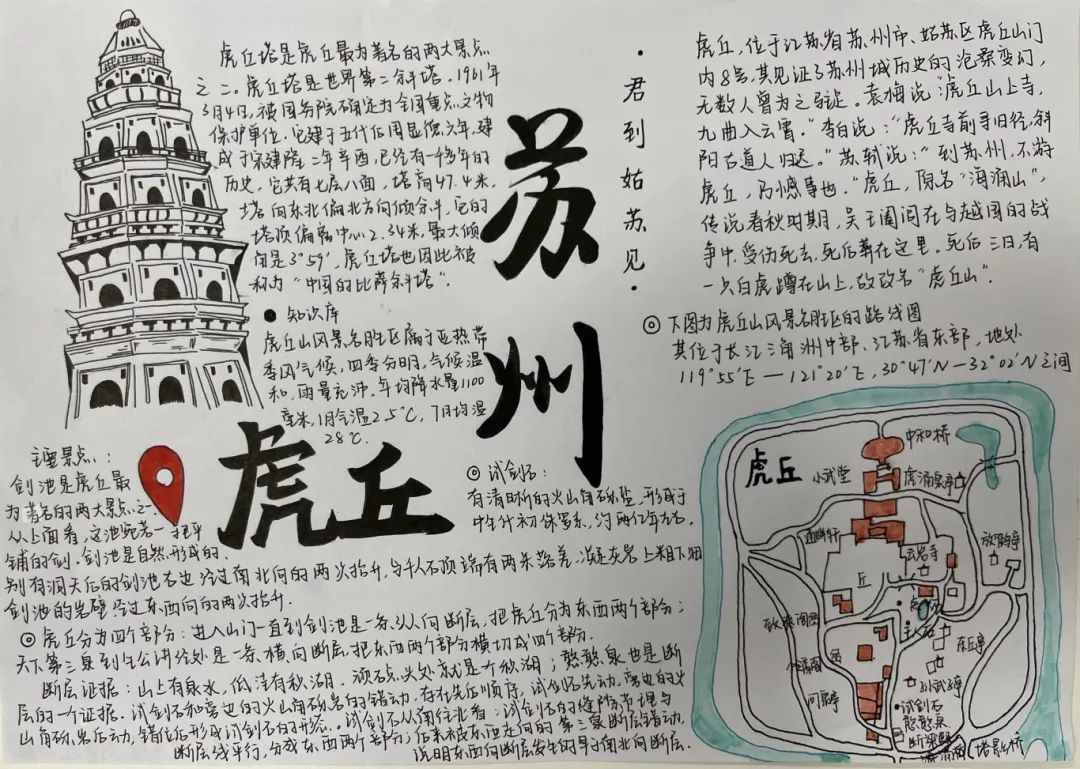 虎丘塔是虎丘最为著名的两大景点
之一。虎丘塔是世界第二斜塔,1961年
3月4日,被国务院确定为全国重点文物
保护单位。它建于五代后周显德六年,建
成于宋建隆二年辛酉,已经有一千多年的
历史。它共有七层八面,塔高47.4米,
塔向东北偏北方向倾斜,它的
塔顶偏离中心2.34米,最大倾
角是3°59',虎丘塔也因此被
称为“中国的比萨斜塔”。
·君到姑苏见·
虎丘,位于江苏省苏州市、姑苏区虎丘山门
内8号,其见证了苏州城历史的沧桑变幻,
无数人曾为之驻足。袁梅说:“虎丘山上寺,
九曲入云霄。”李白说:“虎丘寺前寻旧径,斜
阳古道人归迟。”苏轼说:“到苏州,不游
虎丘,乃憾事也。”虎丘,原名“海涌山”,
传说春秋时期,吴王阖闾在与越国的战
争中,受伤死去,死后葬在这里。死后三日,有
一只白虎蹲在山上,故改名“虎丘山”。
苏州
虎丘
●知识库
虎丘山风景名胜区属于亚热带
季风气候,四季分明,气候温
和,雨量充沛。年均降水量1100
毫米,1月气温2.5℃,7月均温
28℃.
◎下图为虎丘山风景名胜区的路线图
其位于长江三角洲中部、江苏省东部,地处
119°55'E—121°20'E,30°47'N—32°02'N之间
主要景点:
剑池是虎丘最
为著名的两大景点之一
从上面看,这池宛若一把平
铺的剑。剑池是自然形成的。
别有洞天后的剑池右边经过南北向的两次抬升,与千人石顶端有两米落差,凝灰岩上粗下细
剑池的岩壁经过东西向的两次抬升.
◎试剑石:
有清晰的火山角砾岩,形成于
中生代初侏罗系,约两亿年左右.
◎虎丘分为四个部分:进入山门一直到剑池是一条纵向断层,把虎丘分为东西两个部分;
天下第三泉到生公讲经处是一条横向断层,把东西两个部分横切成四个部分.
断层证据:山上有泉水,低洼有秋湖.顽石点头处就是个秋湖;憨憨泉也是断
层的一个证据.试剑石和旁边的火山角砾岩的错动,存在先后顺序,试剑石先动,旁边的火
山角砾岩后动,错位后形成试剑石的形态.试剑石从南往北看:试剑石的缝隙节理与
断层线平行,分成东西两个部分;后来被东西走向的第三泉断层错动,
说明东西向断层发生的早于南北向断层.
虎丘
中和桥
小武堂
虎涌泉亭
通幽轩
云岩寺
放鹤亭
丘
致爽阁
千人石
东丘亭
问泉亭
孙武亭
●试剑石
憨憨泉
断梁殿
塔影桥